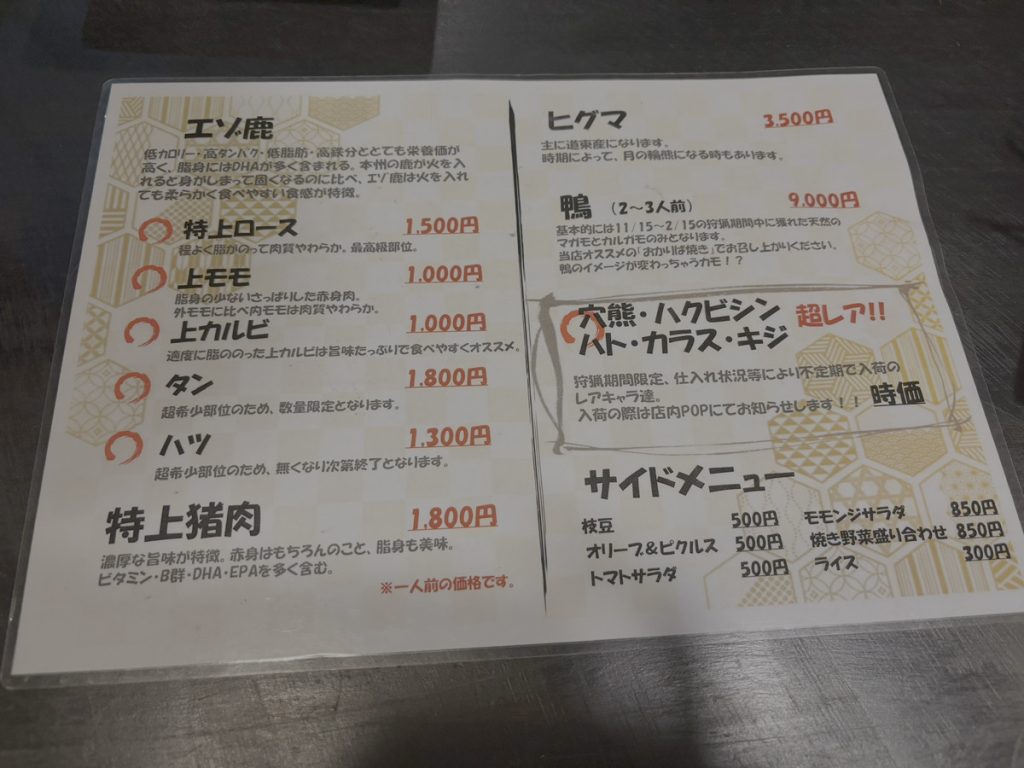 エゾ鹿
低カロリー・高タンパク・低脂肪・高鉄分ととても栄養価が
高く、脂身にはDHAが多く含まれる。本州の鹿が火を入
れると身がしまって固くなるのに比べ、エゾ鹿は火を入れ
ても柔らかく食べやすい食感が特徴。
特上ロース 1,500円
程よく脂がのって肉質やわらか。最高級部位。
上モモ 1,000円
脂身の少ないさっぱりした赤身肉。
外モモに比べ内モモは肉質やわらか。
上カルビ 1,000円
適度に脂ののった上カルビは旨味たっぷりで食べやすくオススメ。
タン 1,800円
超希少部位のため、数量限定となります。
ハツ 1,300円
超希少部位のため、無くなり次第終了となります。
特上猪肉 1,800円
濃厚な旨味が特徴。赤身はもちろんのこと、脂身も美味。
ビタミン・B群・DHA・EPAを多く含む。
※一人前の価格です。
ヒグマ 3,500円
主に道東産になります。
時期によって、月の輪熊になる時もあります。
鴨 (2〜3人前) 9,000円
基本的には11/15〜2/15の狩猟期間中に獲れた天然の
マガモとカルガモのみとなります。
当店オススメの「おかりば焼き」でお召し上がりください。
鴨のイメージが変わっちゃうカモ!?
穴熊・ハクビシン 超レア!!
ハト・カラス・キジ
狩猟期間限定、仕入れ状況等により不定期で入荷の
レアキャラ達。
入荷の際は店内POPにてお知らせします!! 時価
サイドメニュー
枝豆 500円 モモンジサラダ 850円
オリーブ&ピクルス 500円 焼き野菜盛り合わせ 850円
トマトサラダ 500円 ライス 300円